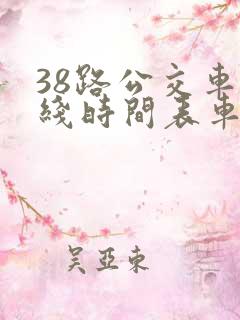 38路公交車
綫時間表車
吴亞東